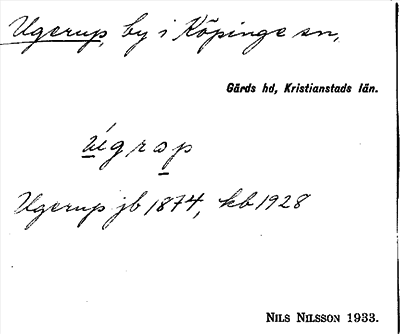 Ugerup, by i Köpinge sn,
Gärds hd, Kristianstads län.
Ugerup jb 1874, kb 1928
NILS NILSSON 1933.